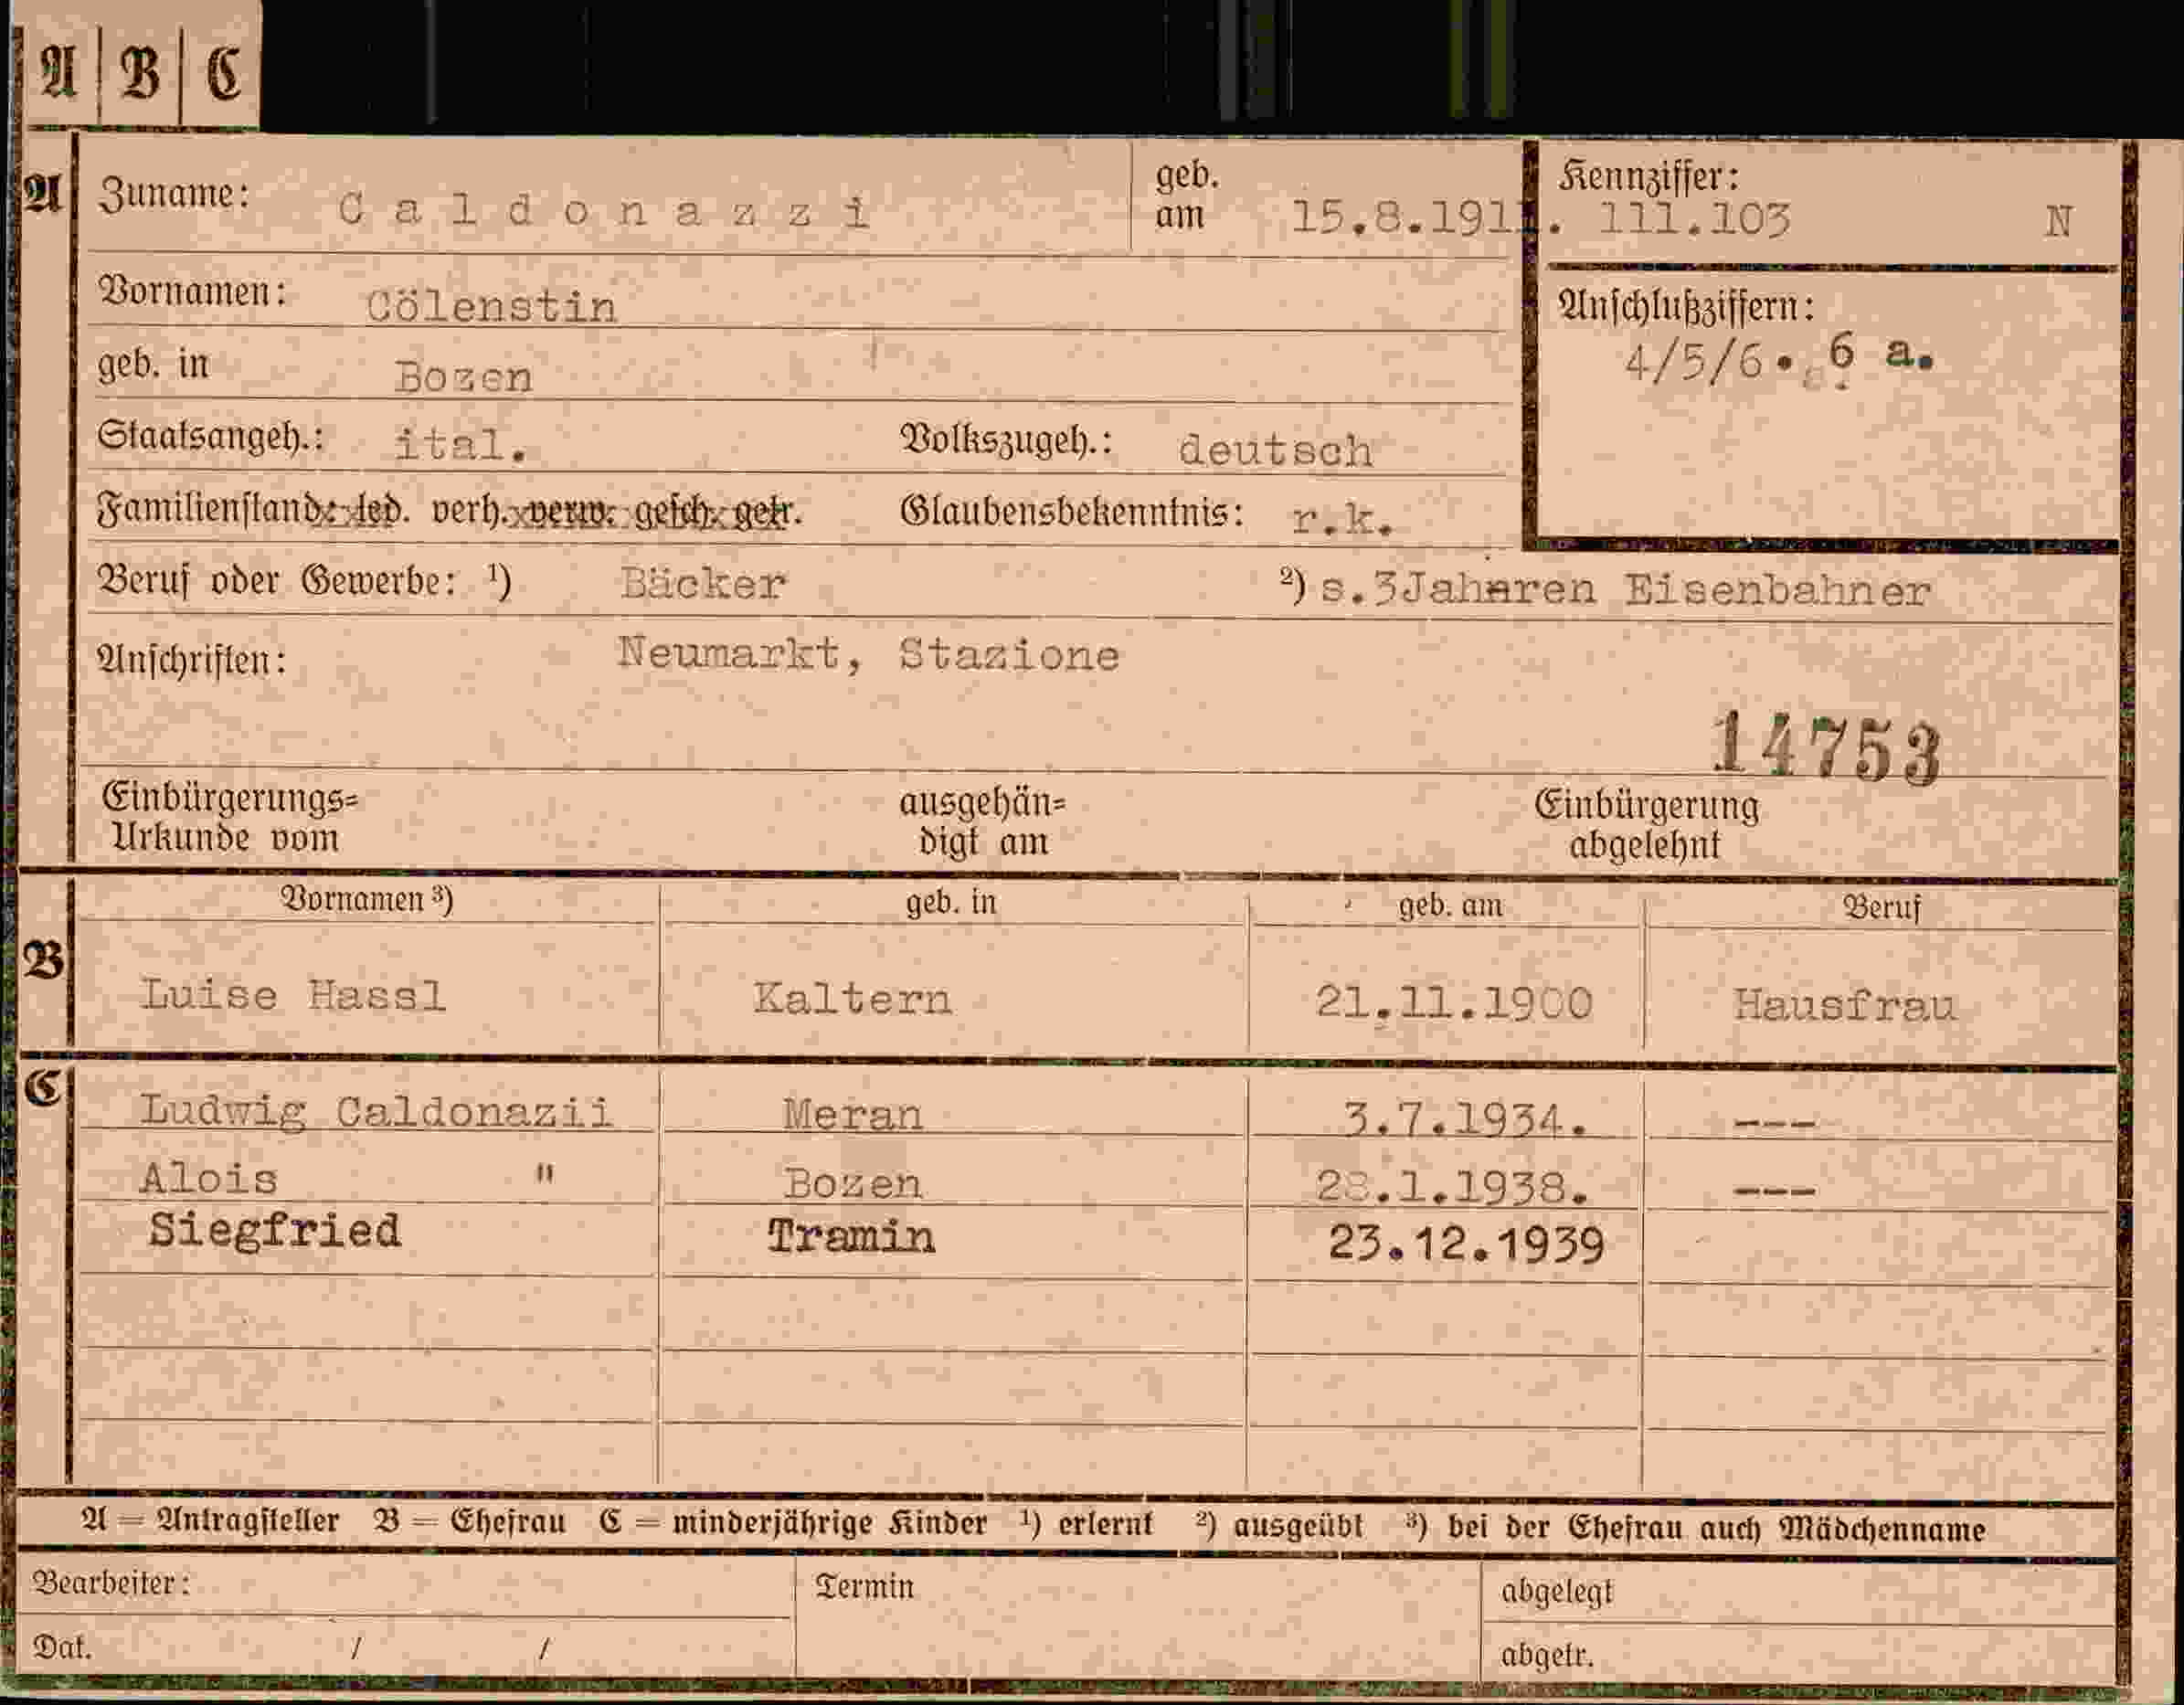 A B C
A Zuname: Caldonazzi geb. am 15.8.1911. Kennziffer: 111.103 N
Vornamen: Cölenstin Anschlußziffern:
4/5/6. 6 a.
geb. in Bozen
Staatsangeh.: ital. Volkszugeh.: deutsch
Familienstand: led. verh. verw. gesch. getr. Glaubensbekenntnis: r.k.
Beruf oder Gewerbe: ¹) Bäcker ²) s.3Jaharen Eisenbahner
Anschriften: Neumarkt, Stazione
14753
Einbürgerungs= ausgehän= Einbürgerung
Urkunde vom digt am abgelehnt
Vornamen ³) geb. in geb. am Beruf
B Luise Hassl Kaltern 21.11.1900 Hausfrau
C Ludwig Caldonazii Meran 3.7.1934. ---
Alois " Bozen 28.1.1938. ---
Siegfried Tramin 23.12.1939
A = Antragsteller B = Ehefrau C = minderjährige Kinder ¹) erlernt ²) ausgeübt ³) bei der Ehefrau auch Mädchenname
Bearbeiter: Termin abgelegt
Dat. / / abgetr.